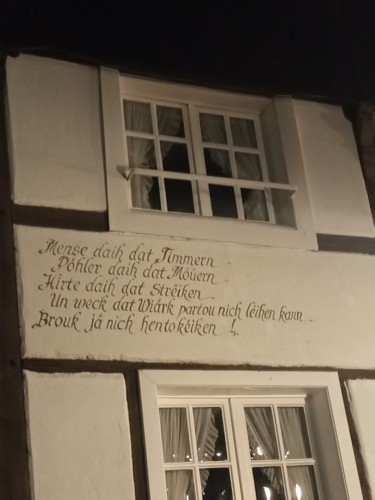 Mense daih dat Timmern
Pöhler daih dat Möüern
Hirte daih dat Strëiken
Un weck dat Wiärk partou nich lëihen kann
Brouk jå nich hentokëiken !